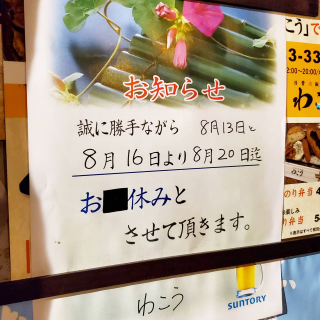 お知らせ
誠に勝手ながら 8月13日と
8月16日より8月20日迄
お 休みと
させて頂きます。
わこう
SUNTORY
こう」で
3-33
2:00〜20:00/
わこ
わこう
のり弁当
り弁当